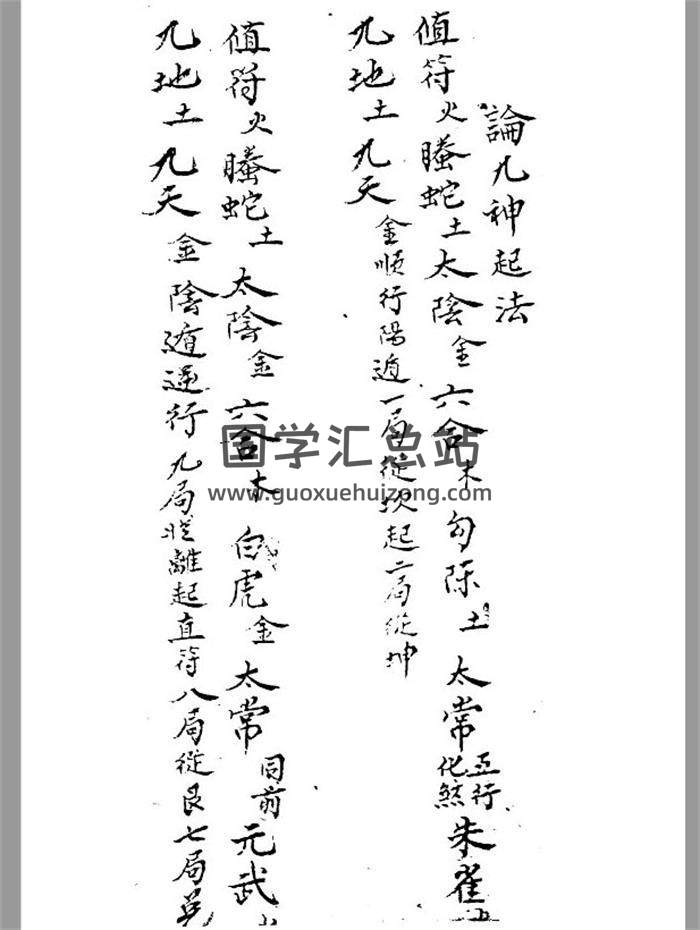 論九神起法
值符火螣蛇土太陰金六合木勾陳土太常五行化煞朱雀
九地土九天金順行陽遁一局從坎起二局從坤
值符火螣蛇土太陰金六合木白虎金太常同前元武
九地土九天金陰遁逆行九局從離起直符八局從艮七局兑
国学汇总站
www.guoxuehuizong.com